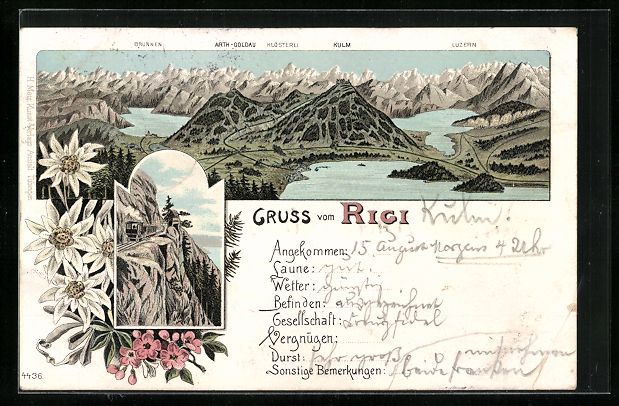 BRUNNEN ARTH-GOLDAU KLÖSTERLI KULM LUZERN
GRUSS vom RIGI Kulm!
Angekommen: 15 August Morgens 4 Uhr
Laune: gut.
Wetter: günstig
Befinden: ausgezeichnet
Gesellschaft: kreuzfidel
Vergnügen:
Durst: sehr groß
Sonstige Bemerkungen: beide
4436.